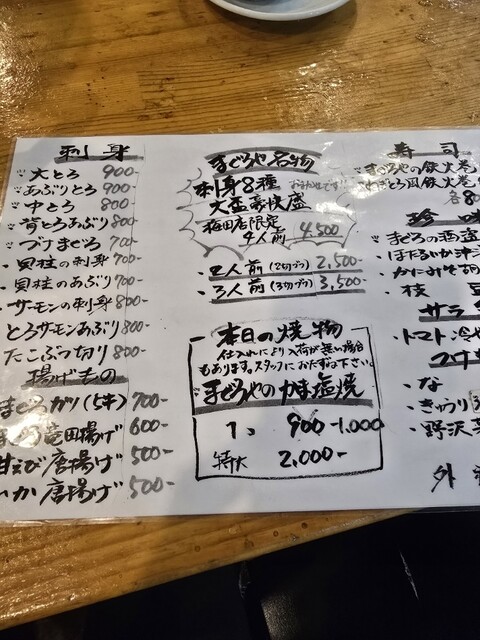 刺身
大とろ 900-
あぶりとろ 900-
中とろ 800-
背とろあぶり 800-
づけまぐろ 700-
貝柱の刺身 700-
貝柱のあぶり 700-
サーモンの刺身 800-
とろサーモンあぶり 800-
たこぶつ切り 800-
揚げもの
まぐろカツ(5本) 700-
竜田揚げ 600-
甘えび唐揚げ 500-
いか唐揚げ 500-
まぐろや名物
刺身8種
大盛豪快盛
梅田店限定
4人前 4,500
・2人前(2切づつ) 2,500-
・3人前(3切づつ) 3,500-
本日の焼物
仕入れにより入荷が無い場合
もあります。スタッフにおたずね下さい。
まぐろやのかま塩焼
1コ 900-1,000
特大 2,000-
寿司
まぐろやの鉄火巻
ねぎとろ風鉄火巻
各80
珍味
まぐろの酒盗
ほたるいか沖
かにみそ
・枝豆
サラ
・トマト冷や
つけ
・な
・きゅうり
・野沢
外